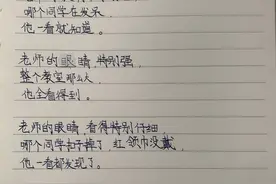 哪个同学在发呆
他一看就知道。
老师的眼睛特别强,
整个教室那么大
他全看得到。
老师的眼睛看得特别仔细
哪个同学扣子掉了,红领巾没戴,
他一看都发现了。